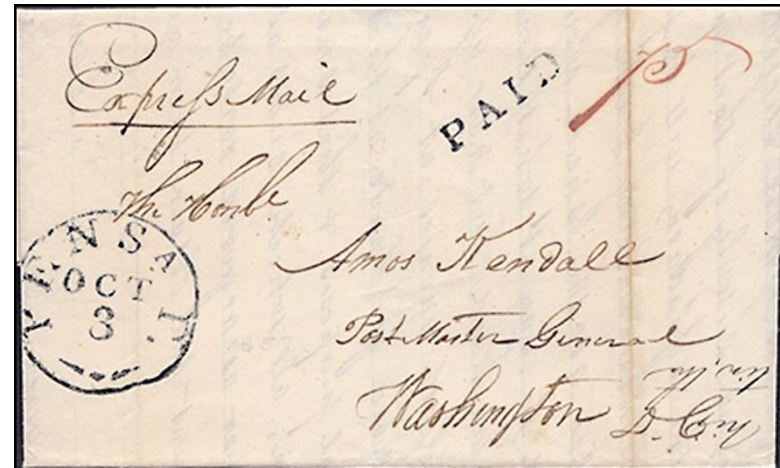 Express Mail
PAID
75
The Honbl.
PENSA F.
OCT
3
Amos Kendall
Post Master General
Washington D. City